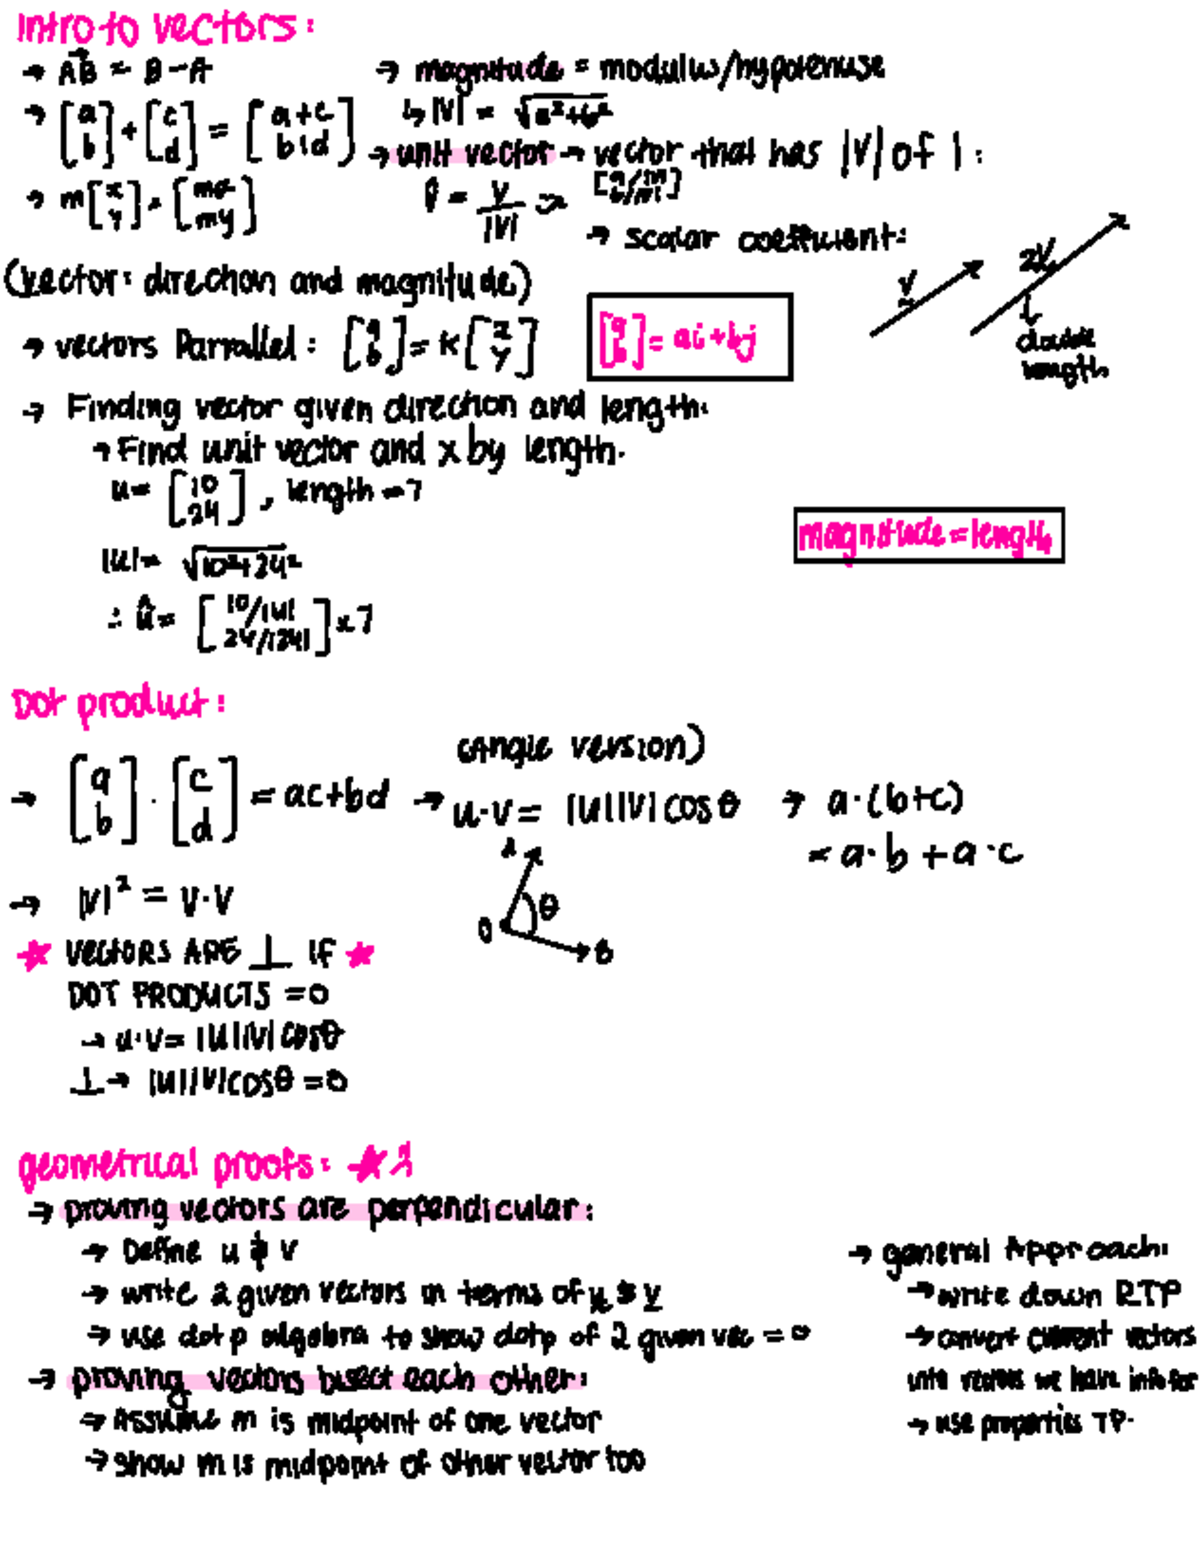 Intro to vectors:
→ AB = B-A
→ [a b] + [c d] = [a+c b+d]
→ m[x y] = [mx my]
→ magnitude = modulus/hypotenuse
↳ |V| = √a²+b²
→ unit vector → vector that has |V| of 1:
v̂ = V/|V| ⇒ [a/|v| b/|v|]
→ scalar coefficient:
V
2V
double
length
(vector: direction and magnitude)
→ vectors Parrallel: [a b] = k[x y]
[a b] = ai + bj
→ Finding vector given direction and length:
→ Find unit vector and x by length.
u = [10 24], length = 7
magnitude = length
|u| = √10²+24²
∴ û = [10/|u| 24/|24|] x 7
Dot product:
→ [a b] · [c d] = ac+bd
(Angle version)
→ u·v = |u||v| cos θ
→ a·(b+c)
= a·b + a·c
A
θ
O
B
→ |v|² = v·v
★ VECTORS ARE ⊥ IF ★
DOT PRODUCTS = 0
→ u·v = |u||v| cosθ
⊥ → |u||v|cosθ = 0
geometrical proofs: ★
→ proving vectors are perpendicular:
→ Define u & v
→ write 2 given vectors in terms of u & v
→ use dot p algebra to show dot p of 2 given vec = 0
→ proving vectors bisect each other:
→ Assume m is midpoint of one vector
→ show m is midpoint of other vector too
→ general Approach:
→ write down RTP
→ convert current vectors
into vectors we have info for
→ use properties TP.